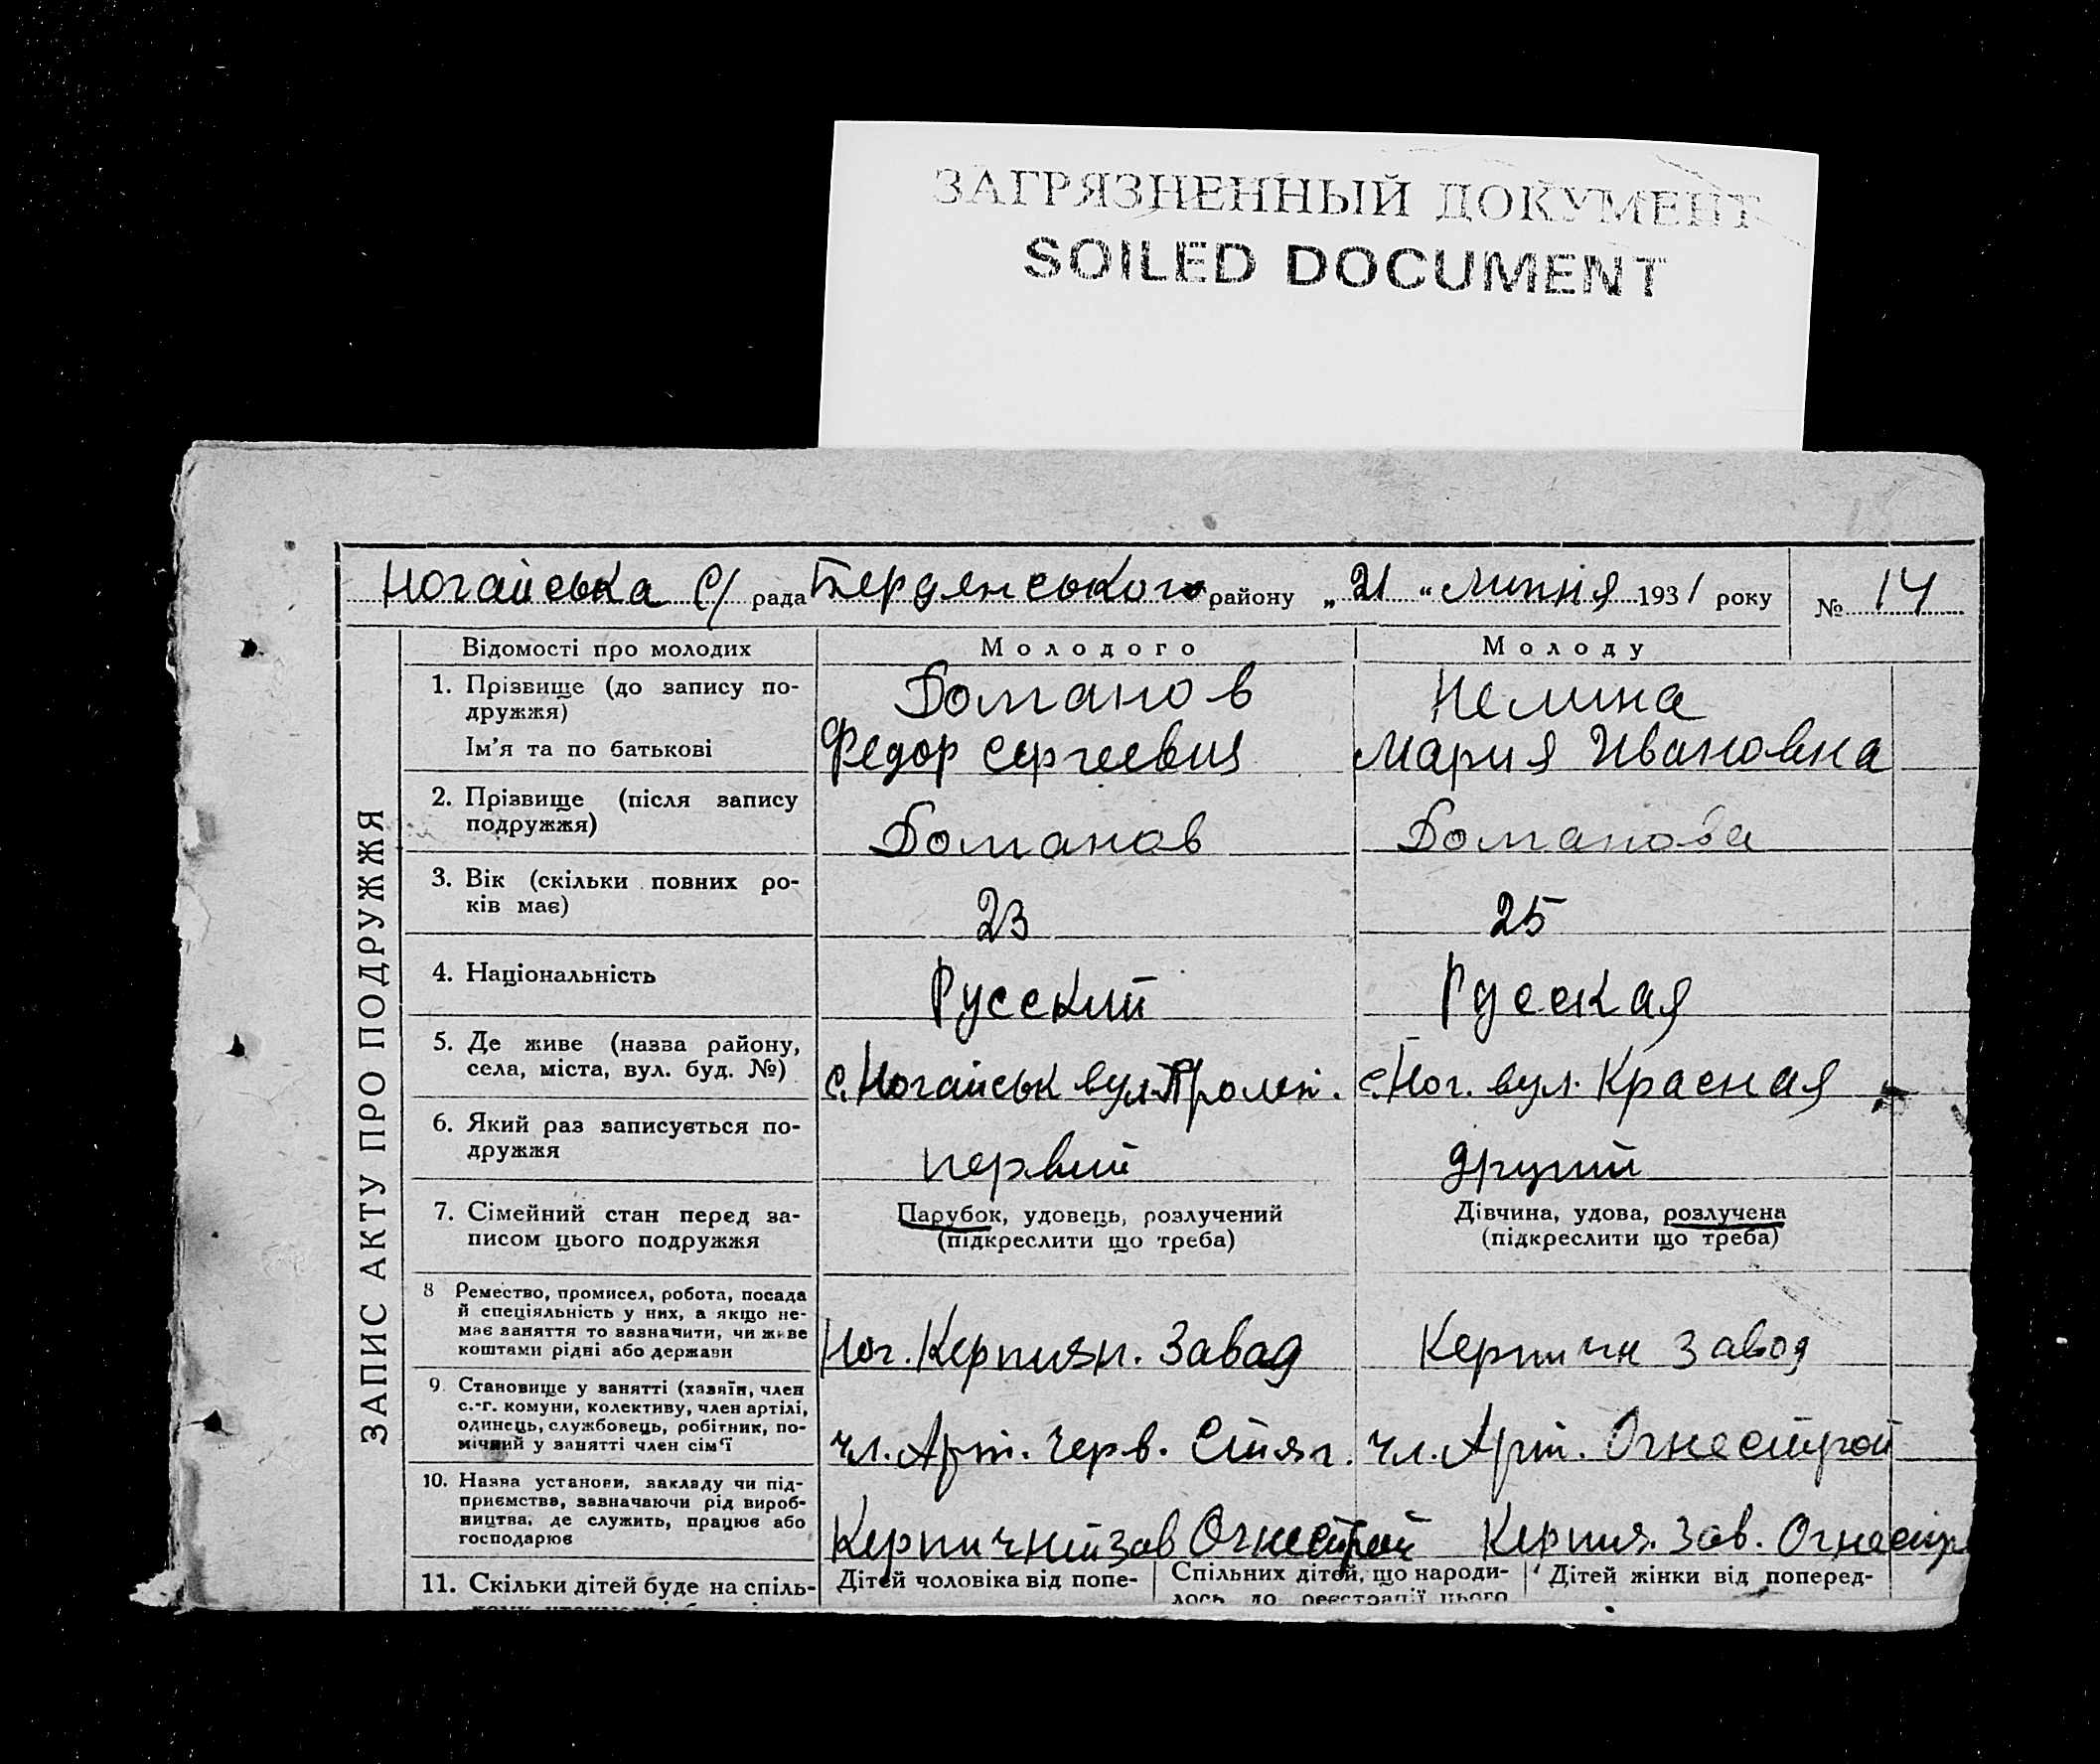 ЗАГРЯЗНЕННЫЙ ДОКУМЕНТ
SOILED DOCUMENT
Ногайська С/ рада Бердянського району „21“ липня 1931 року № 14
ЗАПИС АКТУ ПРО ПОДРУЖЖЯ
Відомості про молодих Молодого Молоду
1. Прізвище (до запису по-
дружжя) Боманов Нелина
Ім'я та по батькові Федор Сергеевич Мария Ивановна
2. Прізвище (після запису
подружжя) Боманов Боманова
3. Вік (скільки повних ро-
ків має) 23 25
4. Національність Русский Русская
5. Де живе (назва району,
села, міста, вул. буд. №) с. Ногайськ вул. Пролет. с. Ног. вул. Красная
6. Який раз записується по-
дружжя первий другий
7. Сімейний стан перед за- Парубок, удовець, розлучений Дівчина, удова, розлучена
писом цього подружжя (підкреслити що треба) (підкреслити що треба)
8 Ремество, промисел, робота, посада
й спеціяльність у них, а якщо не-
має заняття то зазначити, чи живе
коштами рідні або держави Ног. Керпичн. Завод Керпичн Завод
9. Становище у занятті (хазяїн, член
с.-г. комуни, колективу, член артілі,
одинець, службовець, робітник, по-
мічний у занятті член сім'ї чл. Арт. Черв. Стяг. чл. Арт. Огнестрой
10. Назва установи, закладу чи під-
приємства, зазначаючи рід вироб-
ництва, де служить, працює або
господарює Керпичний зав Огнестрой Керпич. Зав. Огнестр
11. Скільки дітей буде на спіль- Дітей чоловіка від попе- Спільних дітей, що народи- Дітей жінки від поперед-
лось до реєстрації цього